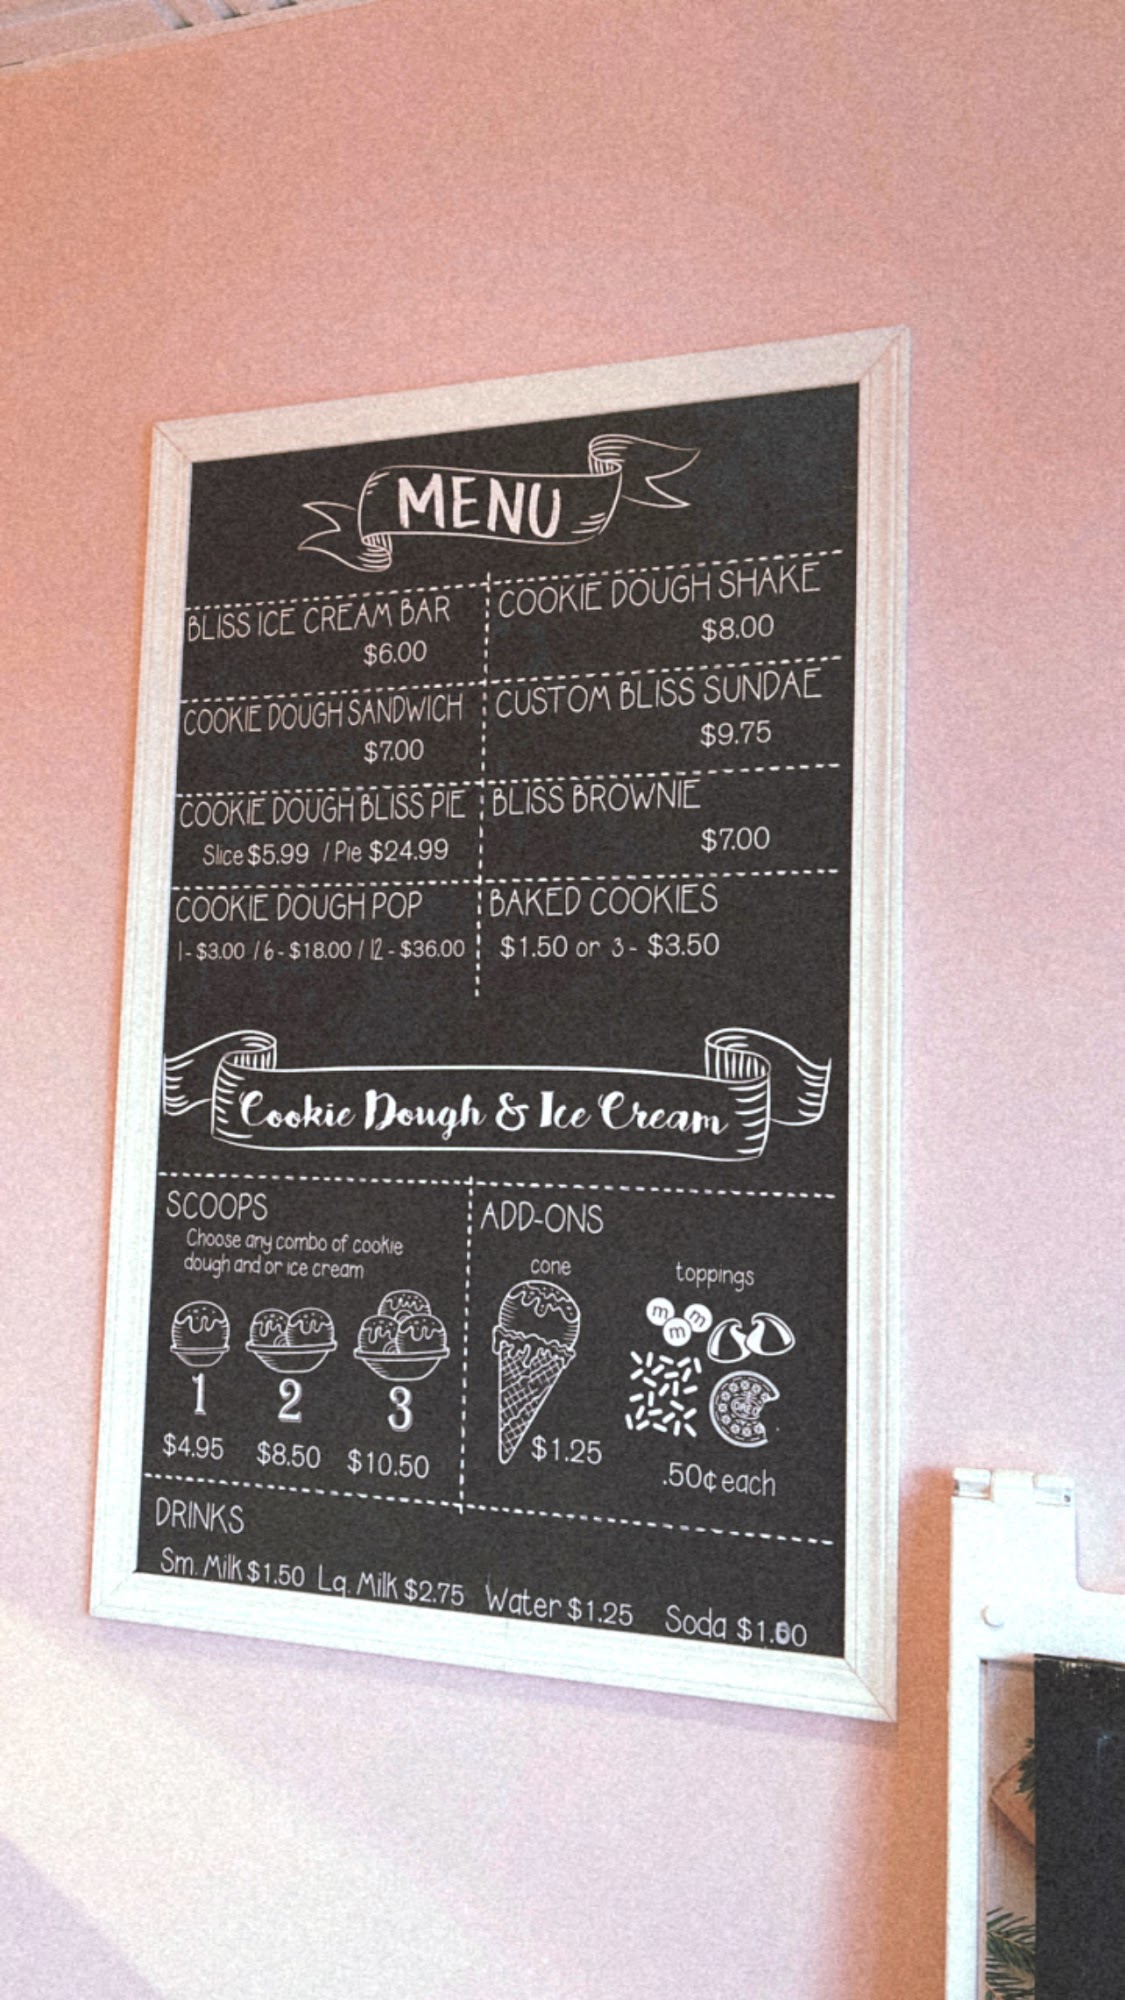 MENU
BLISS ICE CREAM BAR
$6.00
COOKIE DOUGH SHAKE
$8.00
COOKIE DOUGH SANDWICH
$7.00
CUSTOM BLISS SUNDAE
$9.75
COOKIE DOUGH BLISS PIE
Slice $5.99 / Pie $24.99
BLISS BROWNIE
$7.00
COOKIE DOUGH POP
1 - $3.00 / 6 - $18.00 / 12 - $36.00
BAKED COOKIES
$1.50 or 3 - $3.50
Cookie Dough & Ice Cream
SCOOPS
Choose any combo of cookie
dough and or ice cream
1 2 3
$4.95 $8.50 $10.50
ADD-ONS
cone
$1.25
toppings
m m
m
OREO
.50¢ each
DRINKS
Sm. Milk $1.50 Lg. Milk $2.75 Water $1.25 Soda